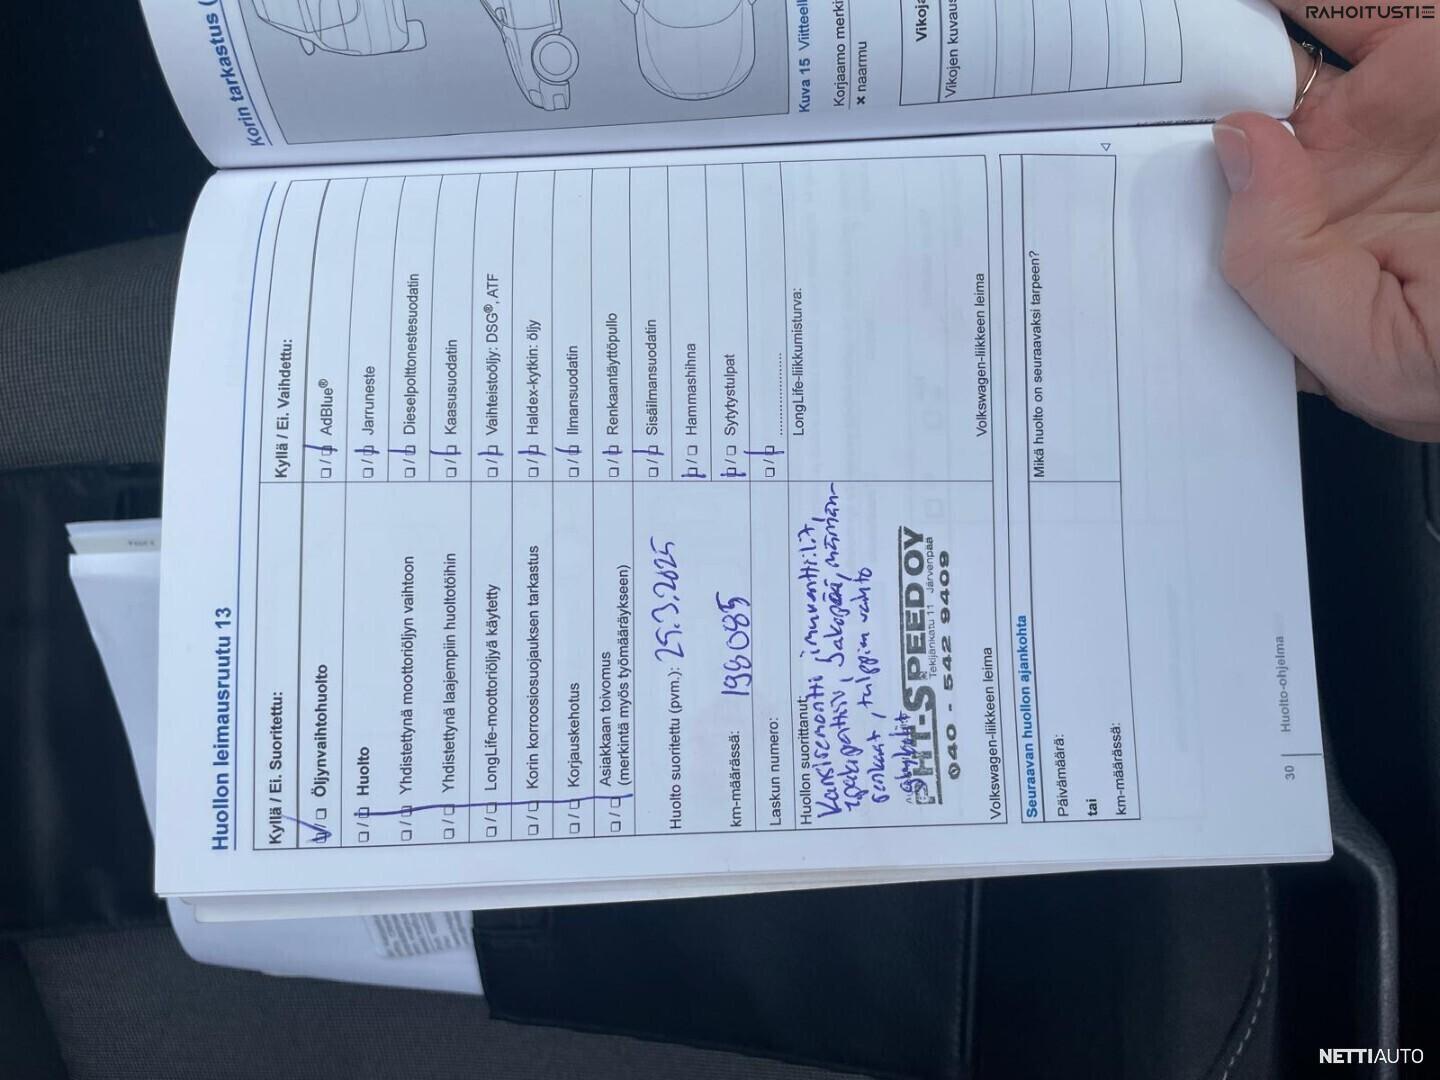 Huollon leimausruutu 13
Kyllä / Ei. Suoritettu:
Öljynvaihtohuolto
Huolto
Yhdistettynä moottoriöljyn vaihtoon
Yhdistettynä laajempiin huoltotöihin
LongLife-moottoriöljyä käytetty
Korin korroosiosuojauksen tarkastus
Korjauskehotus
Asiakkaan toivomus
(merkintä myös työmääräykseen)
Huolto suoritettu (pvm.): 25.3.2025
km-määrässä: 198085
Laskun numero:
Huollon suorittanut:
Kansiremontti, imuventtiilit,
Jakopää,
tulppien vaihto
PHT-SPEED OY
Tekijänkatu 11 Järvenpää
040 - 542 9409
Volkswagen-liikkeen leima
Kyllä / Ei. Vaihdettu:
AdBlue®
Jarruneste
Dieselpolttonestesuodatin
Kaasusuodatin
Vaihteistoöljy: DSG®, ATF
Haldex-kytkin: öljy
Ilmansuodatin
Renkaantäyttöpullo
Sisäilmansuodatin
Hammashihna
Sytytystulpat
LongLife-liikkumisturva:
Volkswagen-liikkeen leima
Seuraavan huollon ajankohta
Päivämäärä:
tai
km-määrässä:
Mikä huolto on seuraavaksi tarpeen?
30
Huolto-ohjelma
Korin tarkastus (
Kuva 15 Viitteell
Korjaamo merki
× naarmu
Vikoja
Vikojen kuvaus
RAHOITUSTIE
NETTIAUTO